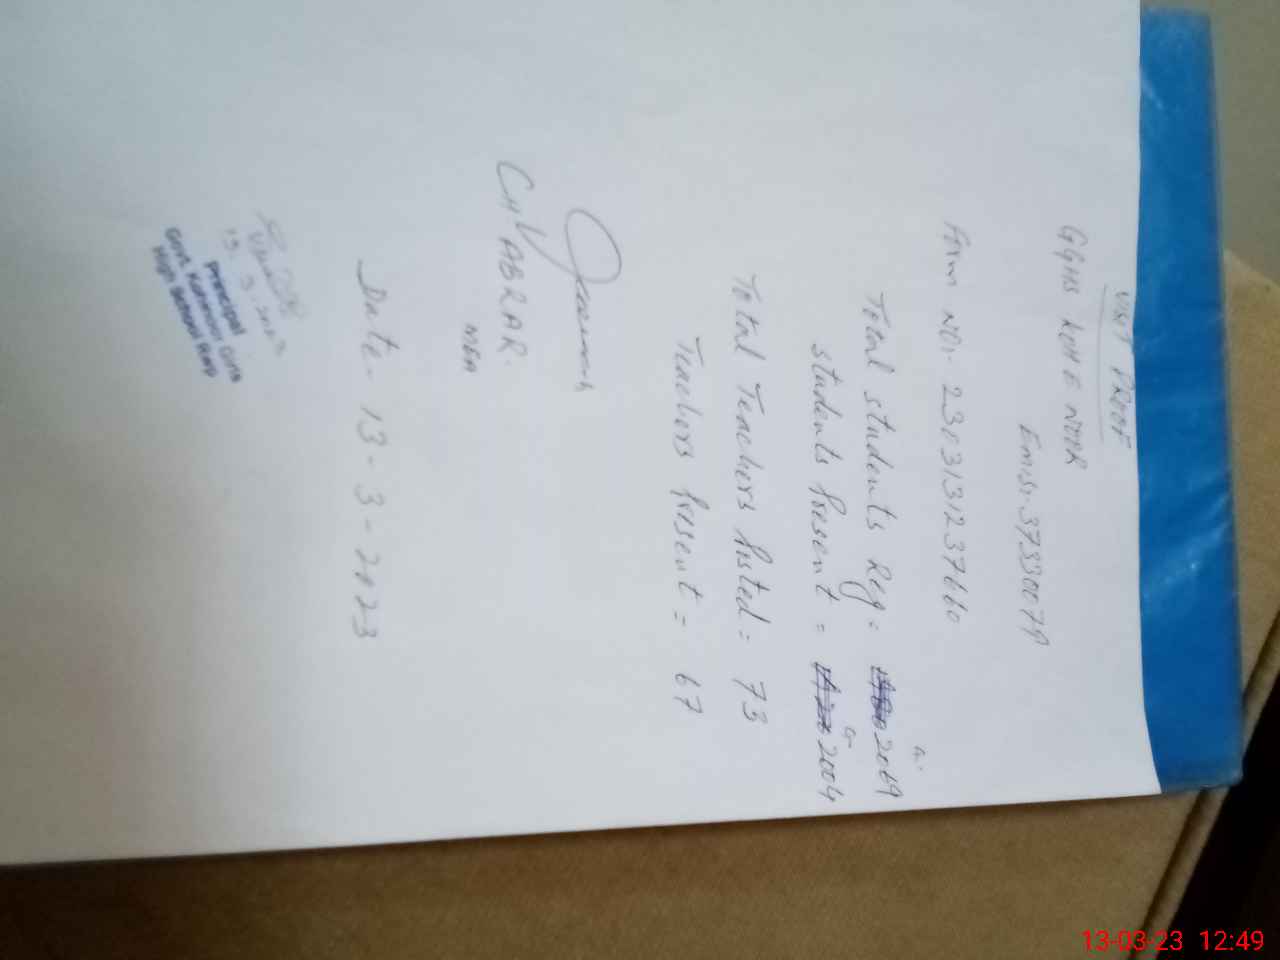 VISIT PROOF
GGHS KOH E NOOR
Emis. 37330079
Form No. 2303131237660
Total students Reg = 2069
students Present = 2004
Total Teachers Posted = 73
Teachers Present = 67
CH ABRAR.
MEA
Date - 13-3-2023
13.3.2023
Principal
Govt. Kohenoor Girls
High School Rwp
13-03-23 12:49